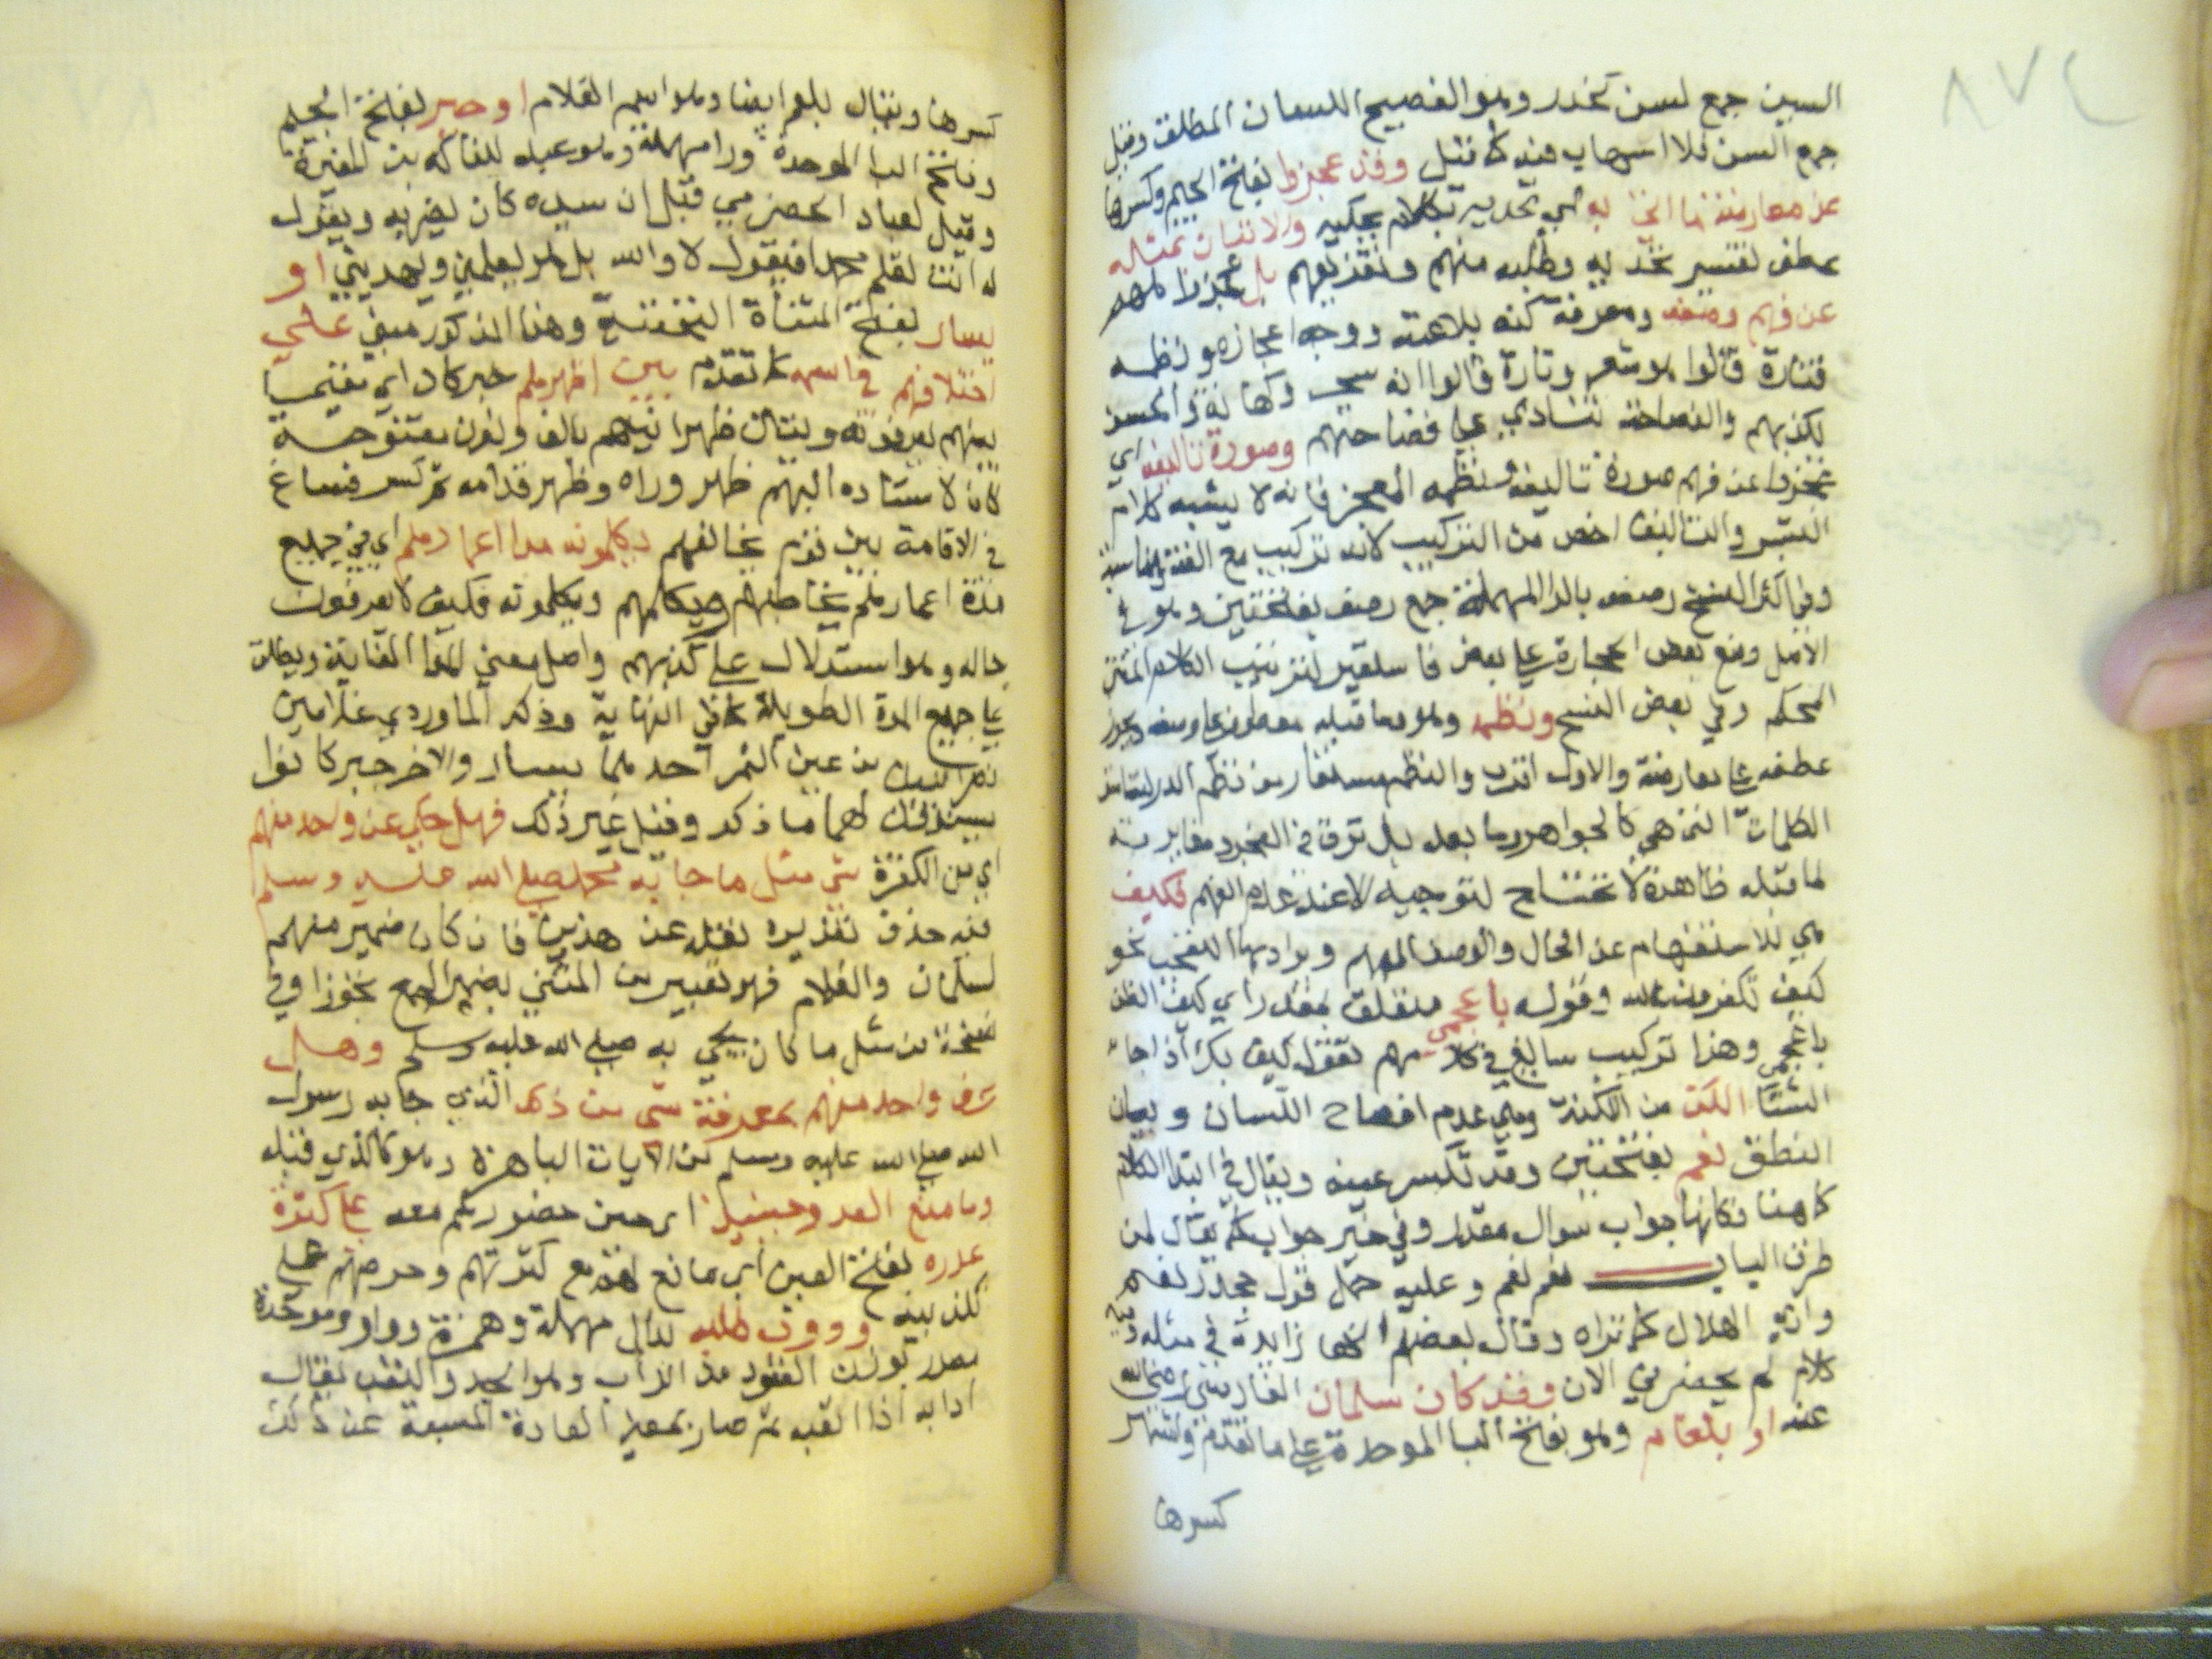 السين جمع لسن كحذر وهو الفصيح اللسان المطلق وقيل
جمع السن فلا اسهاب فيه كما قيل وقد عجزوا بفتح الجيم وكسرها
عن معارضة ما اتى به اي تحديه بكلام يحكيه والاتيان بمثله
عطف تفسير تحد به وطلبه منهم وتقريعهم بل عجزوا لهم
عن فهم وصفه ومعرفة كنه بلاغته ووجه اعجازه ونظمه
فتارة قالوا هو شعر وتارة قالوا انه سحر وكهانة والحسد
يكذبهم والفصاحة تنادي على فضاحتهم وصورة تاليفه اي
عجزوا عن فهم صورة تاليفه ونظمه المعجز فانه لا يشبه كلام
البشر والتاليف اخص من التركيب لانه تركيب مع الفة ومناسبة
وفي اكثر النسخ رصف بالرا المهملة جمع رصف بفتحتين وهو في
الاصل وضع بعض الحجارة على بعض فاستعير لترتيب الكلام المتقن
المحكم وفي بعض النسخ ونظمه وهو وما قبله معطوف على وصفه ويجوز
عطفه على معارضة والاول اقرب والنظم مستعار من نظم الدر لتناسق
الكلمات التي هي كالجواهر وما بعد بل ترق في العجز ومغايرته
لما قبله ظاهرة لا تحتاج لتوجيه الا عند عادم الفهم فكيف
هي للاستفهام عن الحال والوصف المبهم ويراد بها التعجب نحو
كيف تكفرون بالله وقوله باعجمي متعلق بمقدر اي كيف الظن
باعجمي وهذا تركيب سايغ في كلامهم تقول كيف بك اذا جاء
الشتا الكن من اللكنة وهي عدم افصاح اللسان وبيان
النطق نعم بفتحتين وقد تكسر عينه ويقال في ابتدا الكلام
كما هنا فكانها جواب سوال مقدر وفي غير جواب كما يقال لمن
طرق الباب نعم نعم وعليه حمل قول جحدر نعم
وارى الهلال كما تراه وقال بعضهم انها زايدة في مثله
كلام لم يحضرني الان وقد كان سلمان الفارسي رضي الله
عنه او بلعام وهو بفتح البا الموحدة على ما تقدم واشتهر
كسرها
كسرها ويقال بلعم ايضا وهو اسم الغلام او جبر بفتح الجيم
وفتح البا الموحدة ورا مهملة وهو عبد للفاكه بن المغيرة
وقيل لعباد الحضرمي قيل ان سيده كان يضربه ويقول
له انت تعلم محمدا فيقول لا والله بل هو يعلمني ويهديني او
يسار بفتح المثناة التحتية وهذا المذكور مبني على
اختلافهم في اسمه كما تقدم بين اظهرهم خبر كان اي مقيما
بينهم يعرفونه ويقال ظهرانيهم بالف ونون مفتوحة
كان لاستناده اليهم ظهر وراه وظهر قدامه ثم كثر فشاع
في الاقامة بين قوم يخالفهم ويكلمونه مدا اعمارهم اي في جميع
مدة اعمارهم يخاطبهم ويكلمهم ويكلمونه فكيف لا يعرفون
حاله وهو استدلال على كذبهم واصل معنى المدا الغاية ويطلق
على جميع المدة الطويلة كما في النهاية وذكر الماوردي غلامين
نصرانيين من عين التمر احدهما يسار والاخر جبر كانوا
يسترقان لهما ما ذكر وقيل غير ذلك فهل حكى عن واحد منهم
اي من الكفرة شي مثل ما جا به محمد صلى الله عليه وسلم
فيه حذف تقديره نقله عن هذين فان كان ضمير منهم
لسلمان والغلام فهو تعبير عن المثنى بضمير الجمع تجوزا وفي
نسخة من مثل ما كان يجي به صلى الله عليه وسلم وهل
عرف واحد منهم بمعرفة شي من ذلك الذي جا به رسول
الله صلى الله عليه وسلم من الايات الباهرة وهو كالذي قبله
وما منع العدو حينيذ اي حين حضوركم معه على كثرة
عدده بفتح العين اي ما منع لهم مع كثرتهم وحرصهم على
تكذيبه ودووب طلبه بدال مهملة وهمزة وواو وموحدة
مصدر بوزن القعود من الداب وهو الجد والتعب يقال
ادابه اذا اتعبه ثم صار بمعنى العادة المسببة عن ذلك